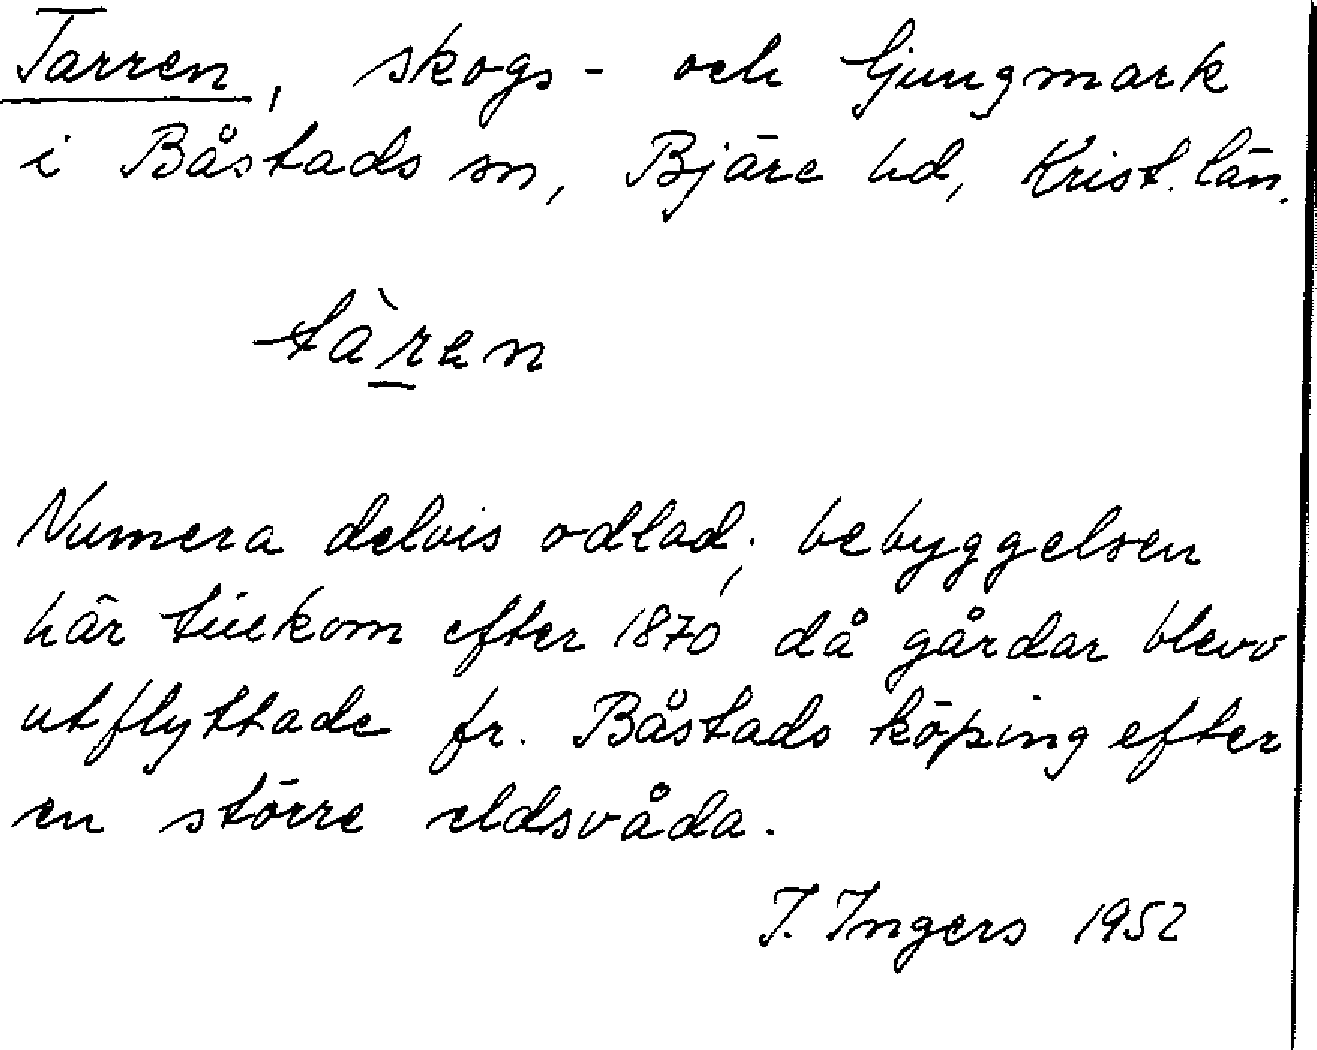 Tarren, skogs- och ljungmark
i Båstads sn, Bjäre hd, Krist. län.
tàren
Numera delvis odlad; bebyggelsen
här tillkom efter 1870 då gårdar blevo
utflyttade fr. Båstads köping efter
en större eldsvåda.
I. Ingers 1952